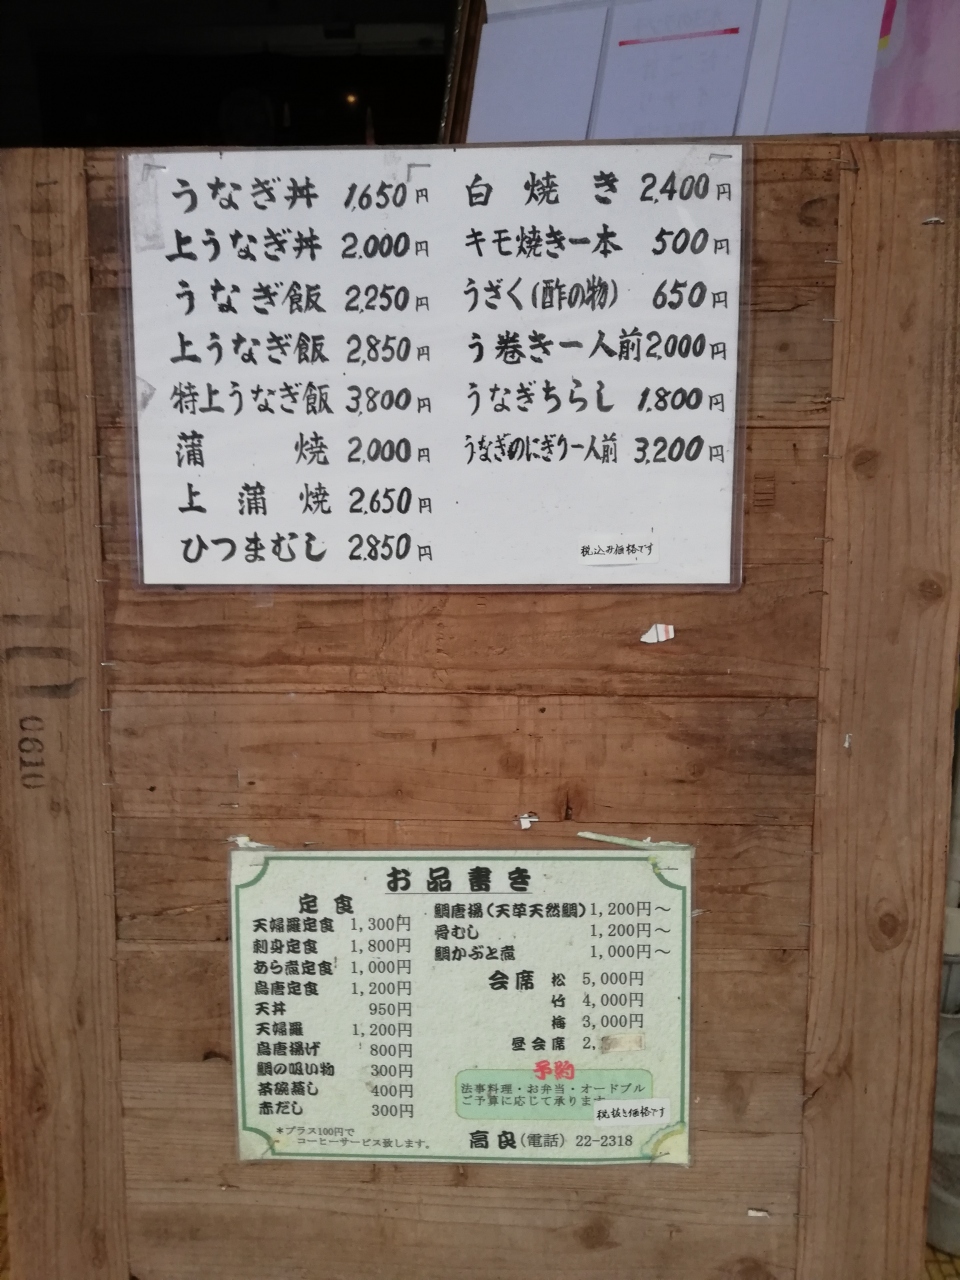 うなぎ丼 1,650円
上うなぎ丼 2,000円
うなぎ飯 2,250円
上うなぎ飯 2,850円
特上うなぎ飯 3,800円
蒲焼 2,000円
上蒲焼 2,650円
ひつまむし 2,850円
白焼き 2,400円
キモ焼き一本 500円
うざく(酢の物) 650円
う巻き一人前 2,000円
うなぎちらし 1,800円
うなぎのにぎり一人前 3,200円
税込み価格です
0610
お品書き
定食
天婦羅定食 1,300円
刺身定食 1,800円
あら煮定食 1,000円
鳥唐定食 1,200円
天丼 950円
天婦羅 1,200円
鳥唐揚げ 800円
鯛の吸い物 300円
茶碗蒸し 400円
赤だし 300円
*プラス100円で
コーヒーサービス致します。
鯛唐揚(天草天然鯛) 1,200円～
骨むし 1,200円～
鯛かぶと煮 1,000円～
会席 松 5,000円
竹 4,000円
梅 3,000円
昼会席 2,
予約
法事料理・お弁当・オードブル
ご予算に応じて承ります
税抜き価格です
高良(電話) 22-2318